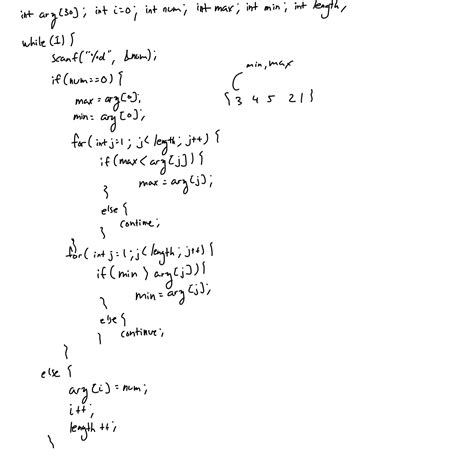 int arg[30]; int i=0; int num; int max; int min; int length;
while(1) {
scanf("%d", &num);
if(num==0) {
max = arg[0];
min = arg[0];
for(int j=1; j<length; j++) {
if(max < arg[j]) {
max = arg[j];
}
else {
continue;
}
}
for(int j=1; j<length; j++) {
if(min > arg[j]) {
min = arg[j];
}
else {
continue;
}
}
else {
arg[i] = num;
i++;
length++;
}
min, max
{3 4 5 2 1}